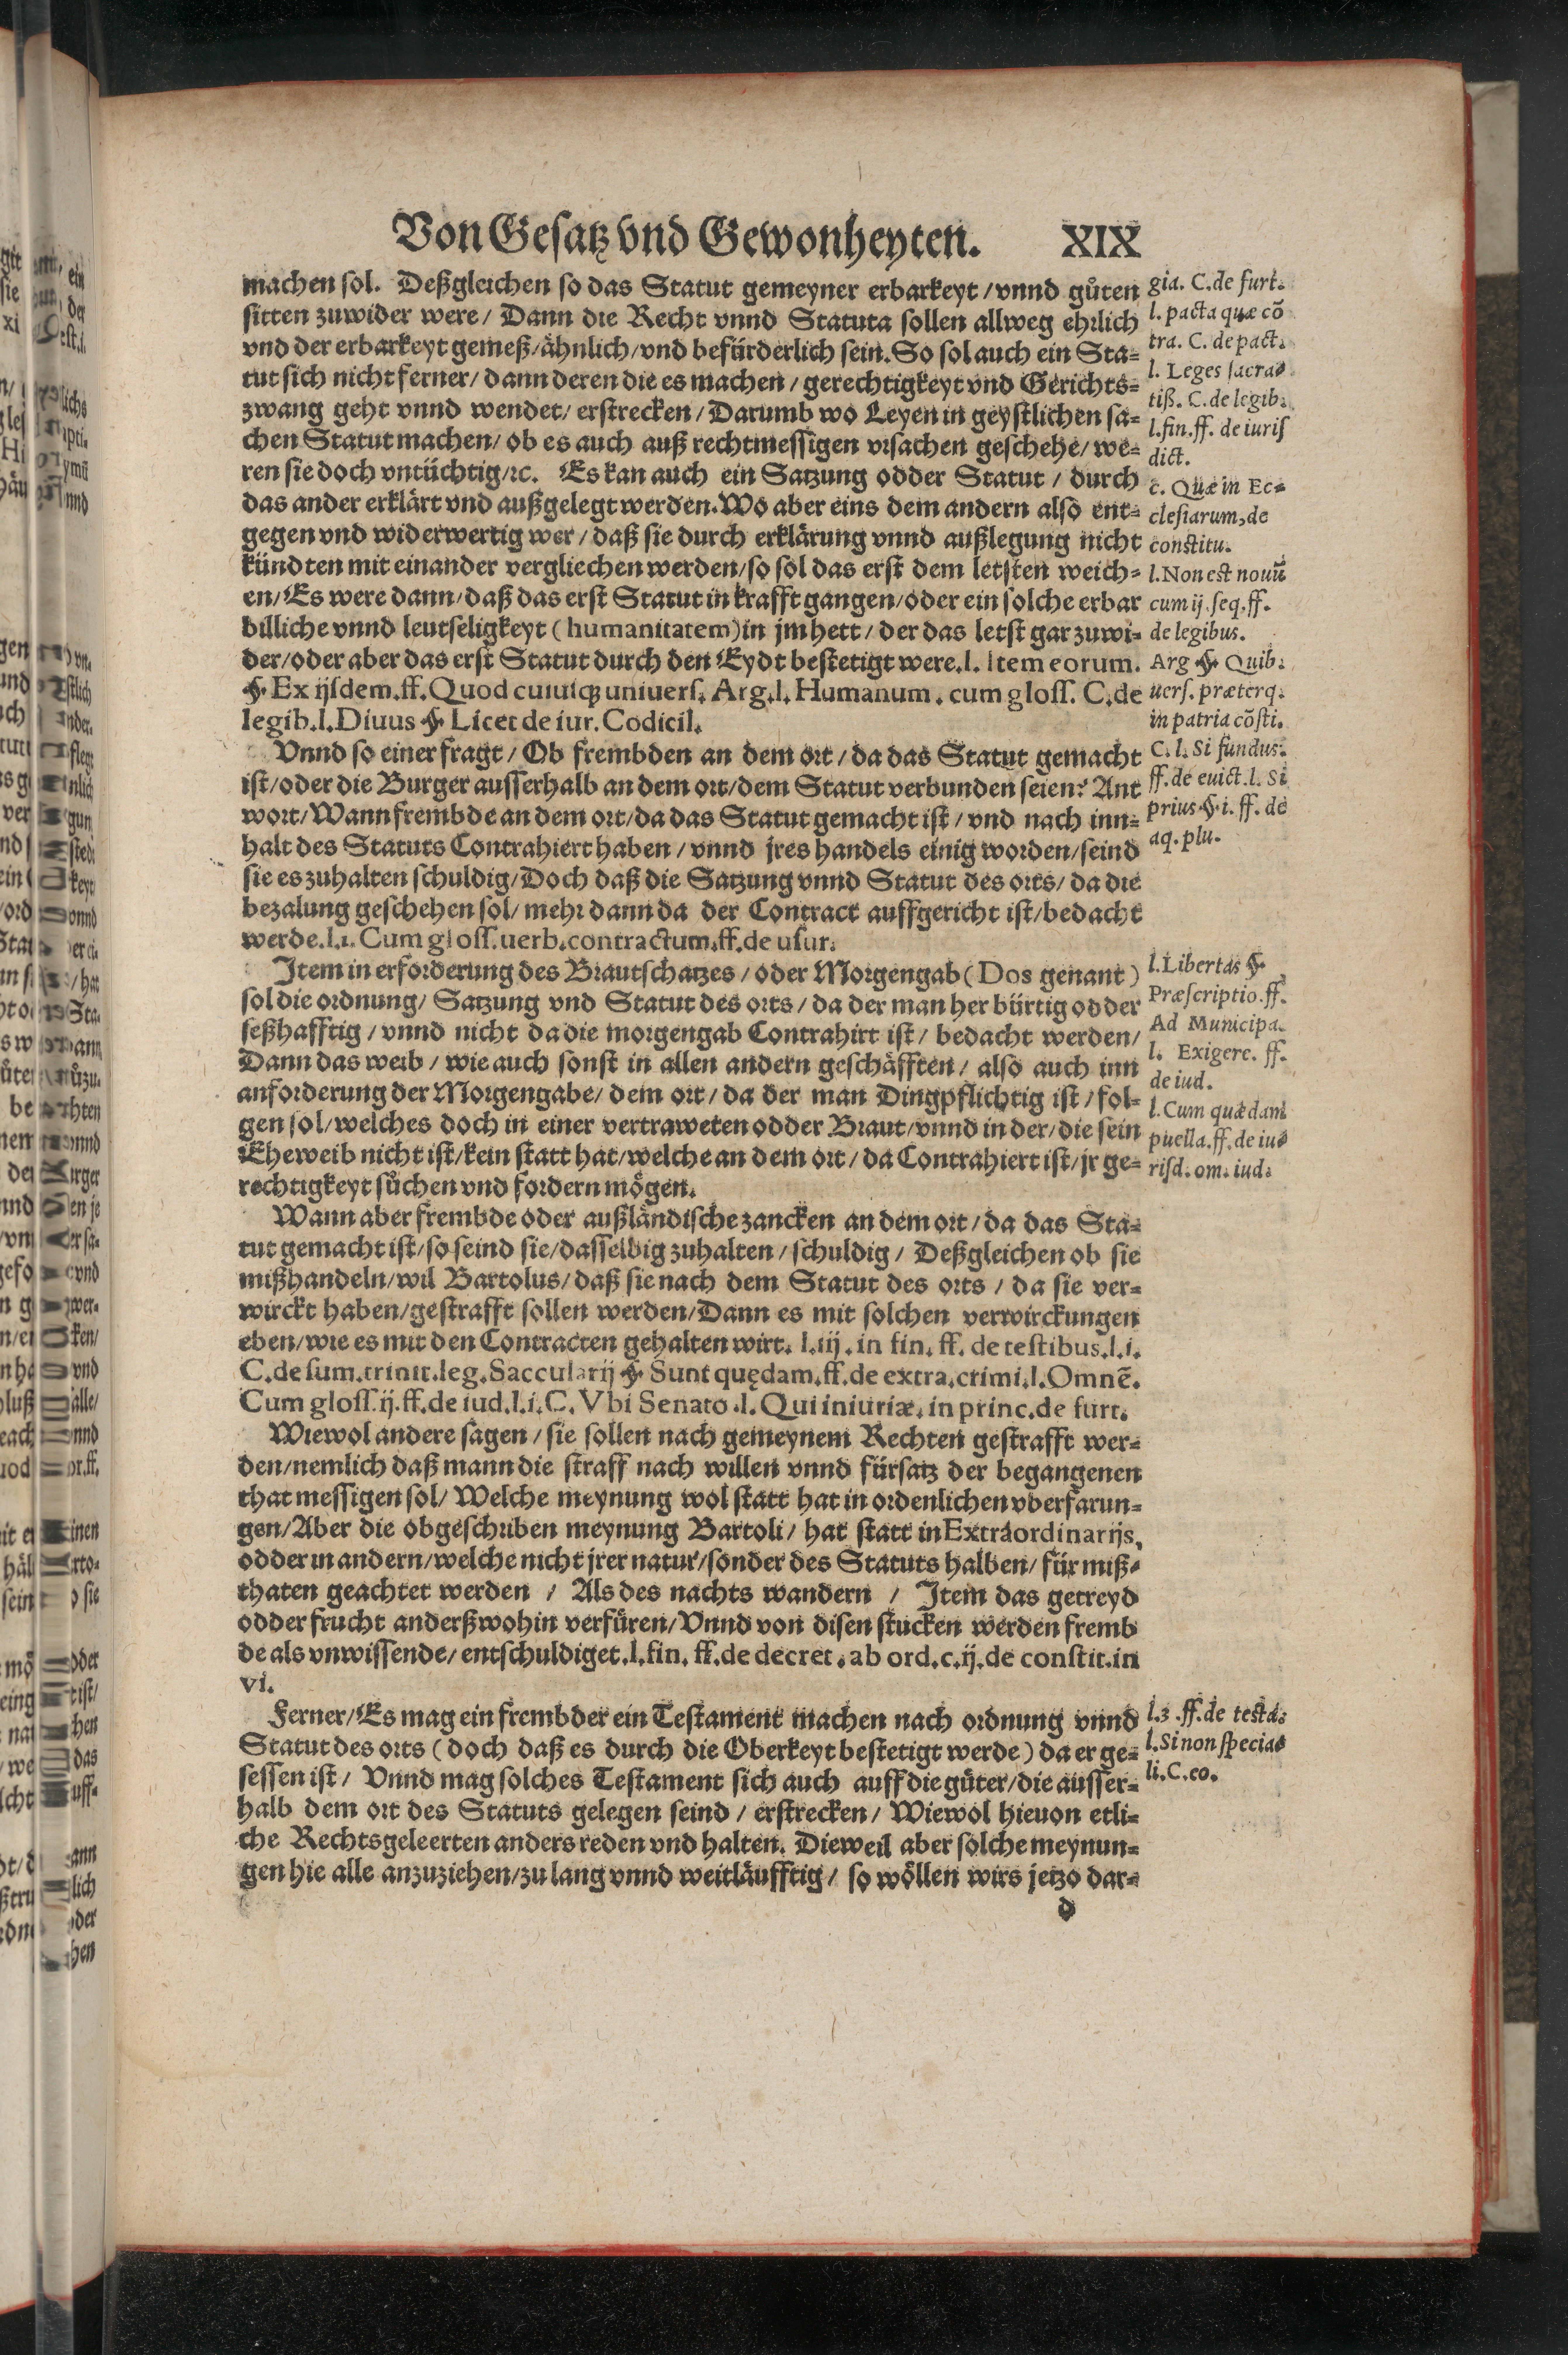 Von Gesatz vnd Gewonheyten. XIX
machen sol. Deßgleichen so das Statut gemeyner erbarkeyt / vnnd gůten
sitten zuwider were / Dann die Recht vnnd Statuta sollen allweg ehrlich
vnd der erbarkeyt gemeß / ähnlich / vnd befürderlich sein. So sol auch ein Sta=
tut sich nicht ferner / dann deren die es machen / gerechtigkeyt vnd Gerichts=
zwang geht vnnd wendet / erstrecken / Darumb wo Leyen in geystlichen sa=
chen Statut machen / ob es auch auß rechtmessigen vrsachen geschehe / we=
ren sie doch vntüchtig / ꝛc. Es kan auch ein Satzung odder Statut / durch
das ander erklärt vnd außgelegt werden. Wo aber eins dem andern also ent=
gegen vnd widerwertig wer / daß sie durch erklärung vnnd außlegung nicht
kündten mit einander vergliechen werden / so sol das erst dem letsten weich=
en / Es were dann / daß das erst Statut in krafft gangen / oder ein solche erbar
billiche vnnd leutseligkeyt ( humanitatem ) in jm hett / der das letst gar zuwi=
der / oder aber das erst Statut durch den Eydt bestetigt were. l. Item eorum.
§. Ex ijsdem. ff. Quod cuiusq; uniuers. Arg. l. Humanum. cum gloss. C. de
legib. l. Diuus §. Licet de iur. Codicil.
Vnnd so einer fragt / Ob frembden an dem ort / da das Statut gemacht
ist / oder die Burger ausserhalb an dem ort / dem Statut verbunden seien? Ant
wort / Wann frembde an dem ort / da das Statut gemacht ist / vnd nach inn=
halt des Statuts Contrahiert haben / vnnd jres handels einig worden / seind
sie es zuhalten schuldig / Doch daß die Satzung vnnd Statut des orts / da die
bezalung geschehen sol / mehr dann da der Contract auffgericht ist / bedacht
werde. l. 1. Cum gloss. uerb. contractum. ff. de usur.
Item in erforderung des Brautschatzes / oder Morgengab ( Dos genant )
sol die ordnung / Satzung vnd Statut des orts / da der man her bürtig odder
seßhafftig / vnnd nicht da die morgengab Contrahirt ist / bedacht werden /
Dann das weib / wie auch sonst in allen andern geschäfften / also auch inn
anforderung der Morgengabe / dem ort / da der man Dingpflichtig ist / fol=
gen sol / welches doch in einer vertraweten odder Braut / vnnd in der / die sein
Eheweib nicht ist / kein statt hat / welche an dem ort / da Contrahiert ist / jr ge=
rechtigkeyt sůchen vnd fordern mögen.
Wann aber frembde oder außländische zancken an dem ort / da das Sta=
tut gemacht ist / so seind sie / dasselbig zuhalten / schuldig / Deßgleichen ob sie
mißhandeln / wil Bartolus / daß sie nach dem Statut des orts / da sie ver=
wirckt haben / gestrafft sollen werden / Dann es mit solchen verwirckungen
eben / wie es mit den Contracten gehalten wirt. l. iij. in fin. ff. de testibus. l. i.
C. de sum. trinit. leg. Saccularij §. Sunt quędam. ff. de extra. crimi. l. Omnē.
Cum gloss. ij. ff. de iud. l. i. C. Vbi Senato. l. Qui iniuriæ. in princ. de furt.
Wiewol andere sagen / sie sollen nach gemeynem Rechten gestrafft wer=
den / nemlich daß mann die straff nach willen vnnd fürsatz der begangenen
that messigen sol / Welche meynung wol statt hat in ordenlichen vberfarun=
gen / Aber die obgeschriben meynung Bartoli / hat statt in Extraordinarijs,
odder in andern / welche nicht jrer natur / sonder des Statuts halben / für miß=
thaten geachtet werden / Als des nachts wandern / Item das getreyd
odder frucht anderßwohin verfüren / Vnnd von disen stucken werden fremb
de als vnwissende / entschuldiget. l. fin. ff. de decret. ab ord. c. ij. de constit. in
vi.
Ferner / Es mag ein frembder ein Testament machen nach ordnung vnnd
Statut des orts ( doch daß es durch die Oberkeyt bestetigt werde ) da er ge=
sessen ist / Vnnd mag solches Testament sich auch auff die güter / die ausser=
halb dem ort des Statuts gelegen seind / erstrecken / Wiewol hieuon etli=
che Rechtsgeleerten anders reden vnd halten. Dieweil aber solche meynun=
gen hie alle anzuziehen / zu lang vnnd weitläufftig / so wöllen wirs jetzo dar=
d
gia. C. de furt.
l. pacta quæ cō
tra. C. de pact.
l. Leges sacra=
tiß. C. de legib.
l. fin. ff. de iuris
dict.
c. Quæ in Ec=
clesiarum, de
constitu.
l. Non est nouū
cum ij. seq. ff.
de legibus.
Arg §. Quib.
uers. præterq.
in patria cōsti.
C. l. Si fundus.
ff. de euict. l. Si
prius §. i. ff. de
aq. plu.
l. Libertas §.
Præscriptio. ff.
Ad Municipa.
l. Exigere. ff.
de iud.
l. Cum quædam
puella. ff. de iu=
risd. om. iud.
l. 3. ff. de testa.
l. Si non specia=
li. C. eo.